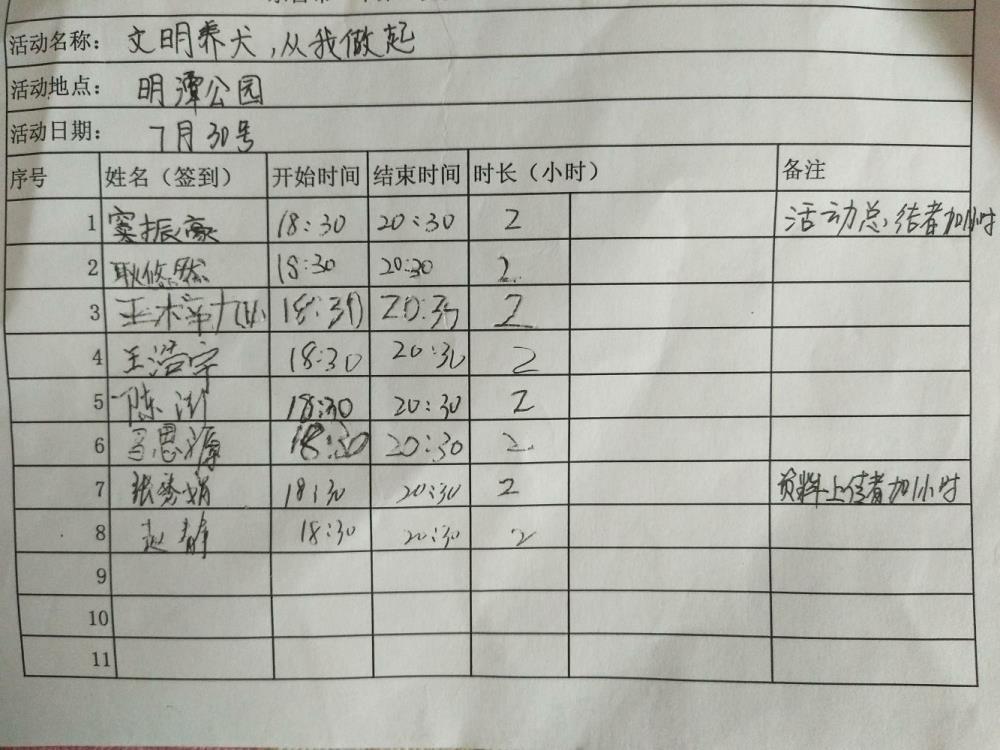 活动名称: 文明养犬,从我做起
活动地点: 明潭公园
活动日期: 7月30号
序号 姓名（签到） 开始时间 结束时间 时长（小时） 备注
1 窦振豪 18:30 20:30 2 活动总结者加1小时
2 耿悠然 18:30 20:30 2
3 18:30 20:30 2
4 王浩宇 18:30 20:30 2
5 陈 18:30 20:30 2
6 马思源 18:30 20:30 2
7 张秀娟 18:30 20:30 2 资料上传者加1小时
8 赵静 18:30 20:30 2
9
10
11